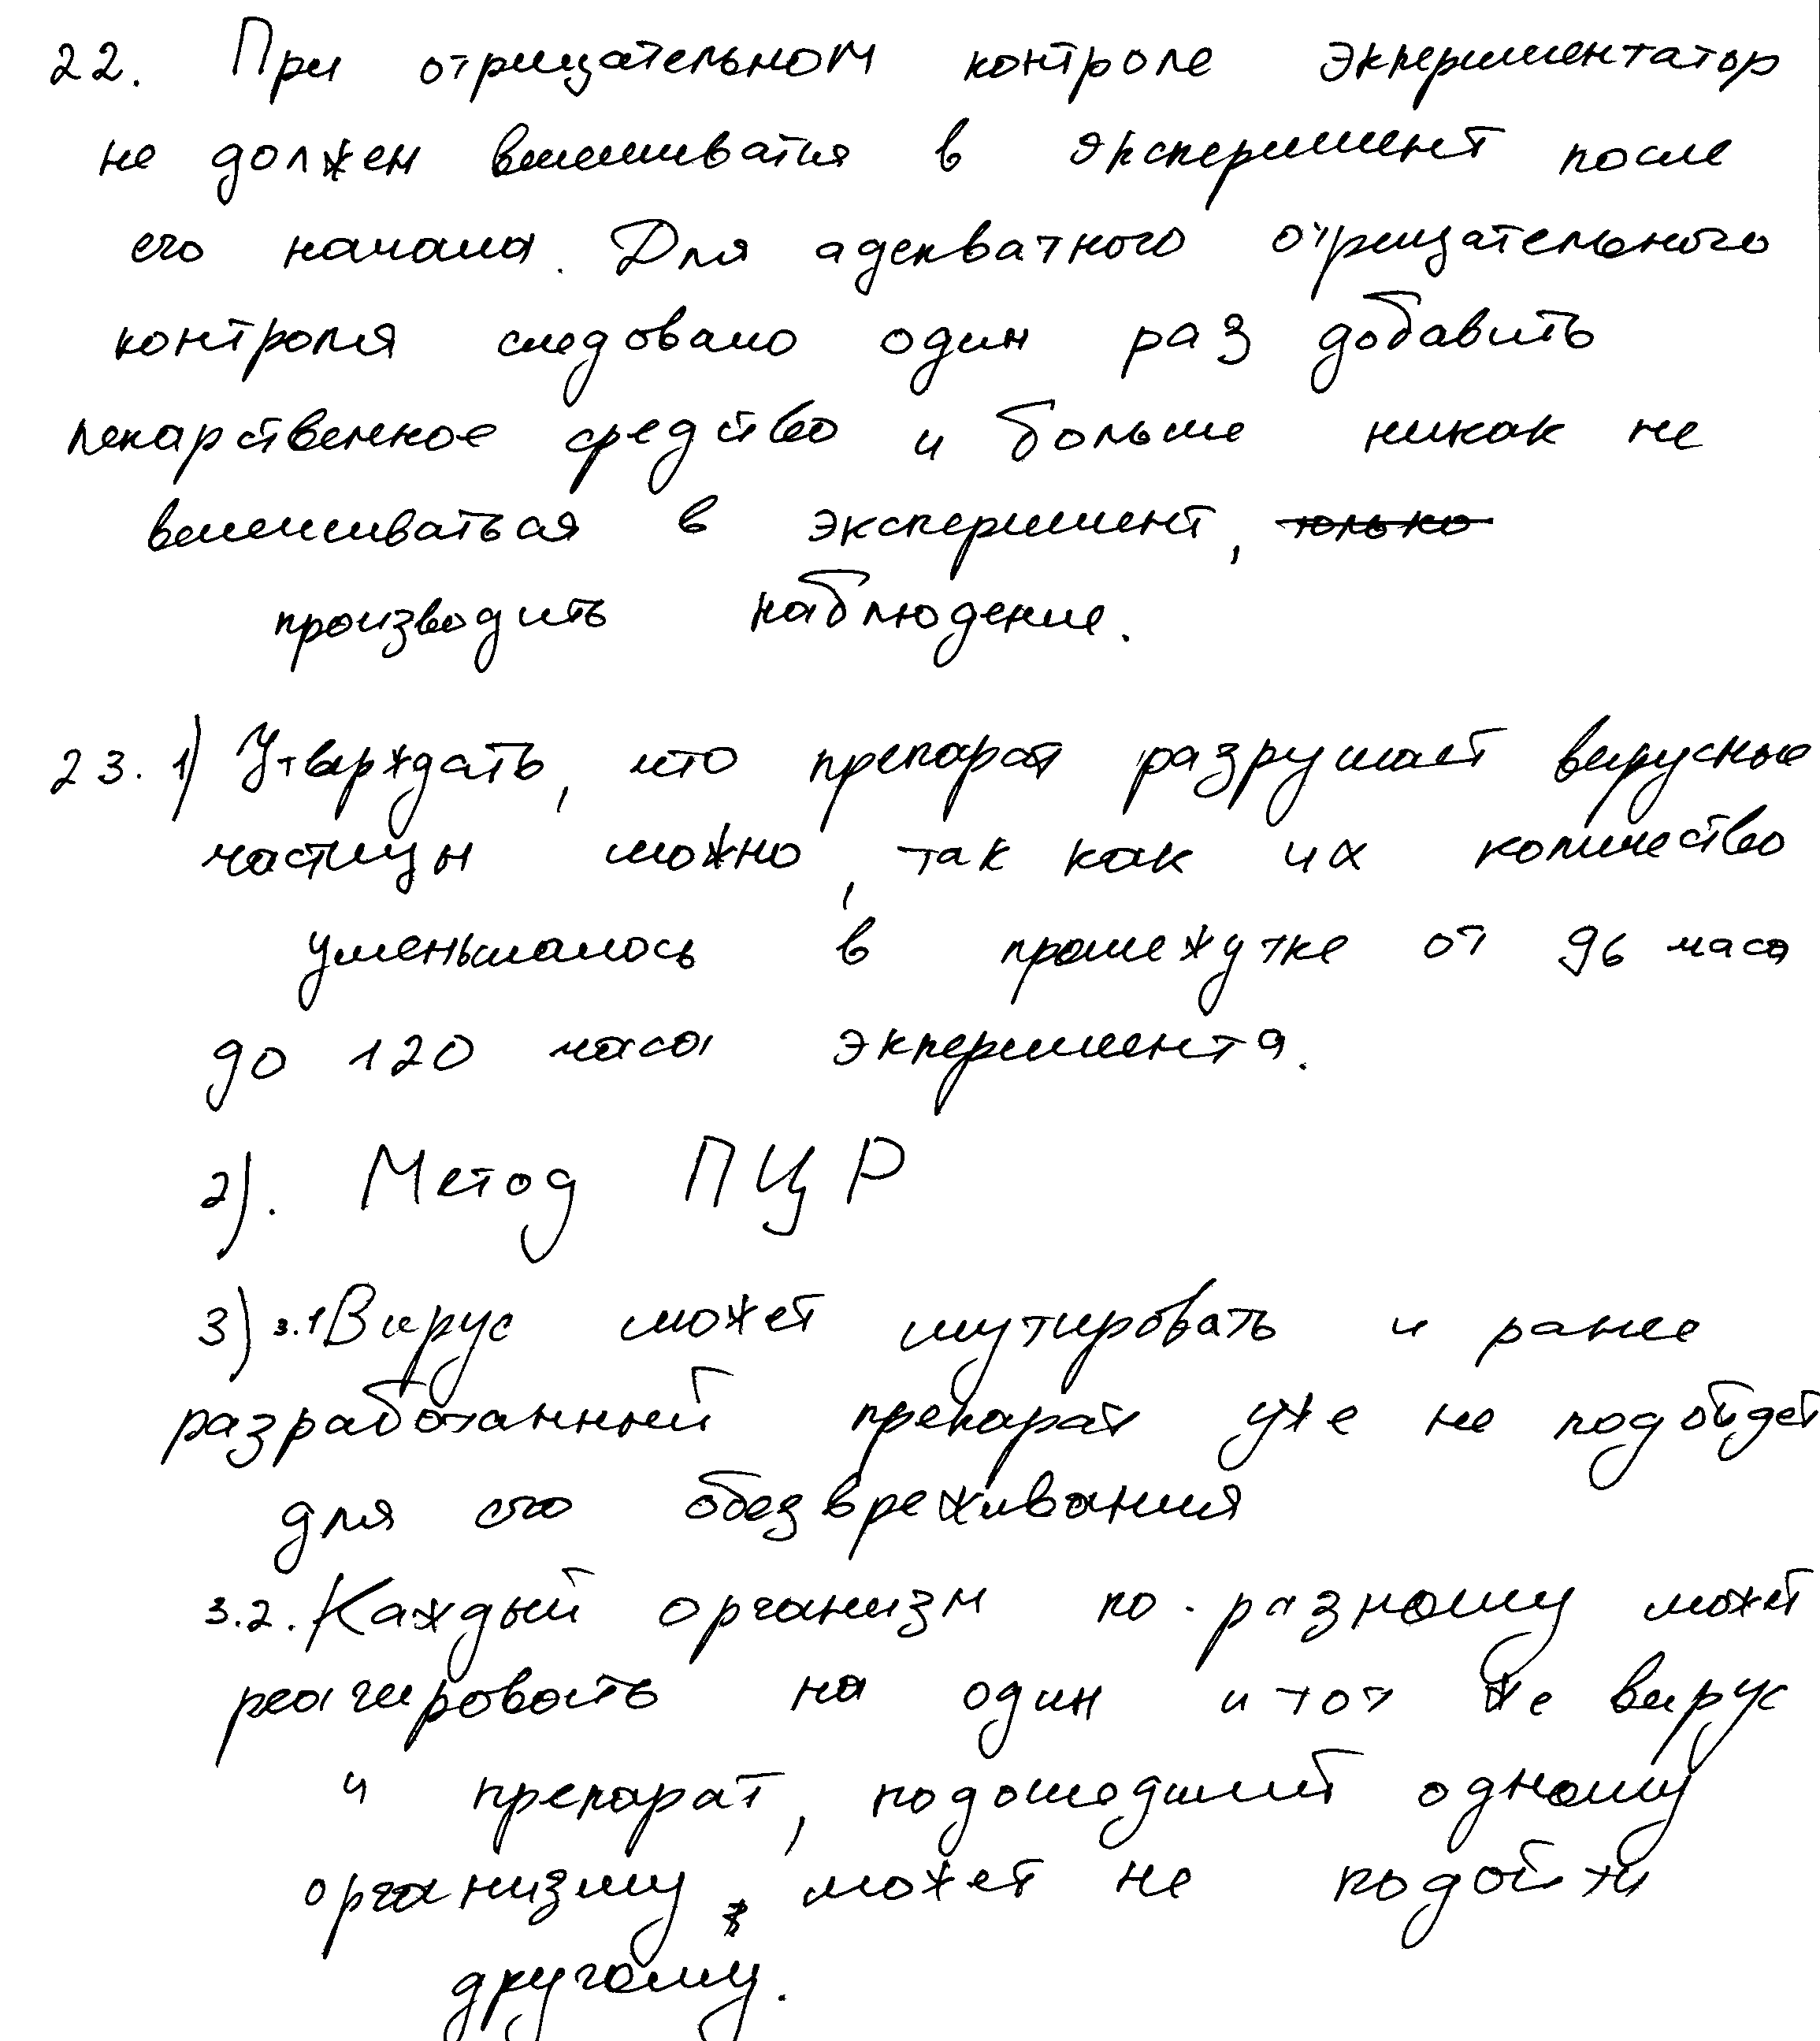 22. При отрицательном контроле экпериментатор
не должен вмешиватья в эксперимент после
его начала. Для адекватного отрицательного
контроля следовало один раз добавить
лекарственное средство и больше никак не
вмешиваться в эксперимент, только
производить наблюдение.
23. 1) Утверждать, что препарат разрушает вирусные
частицы можно, так как их количество
уменьшалось в промежутке от 96 часа
до 120 часа экперимента.
2). Метод ПЦР
3) 3.1 Вирус может мутировать и ранее
разработанный препарат уже не подойдет
для его обезвреживания
3.2. Каждый организм по-разному может
реагировать на один и тот же вирус
и препарат, подошедший одному
организму, может не подойти
другому.